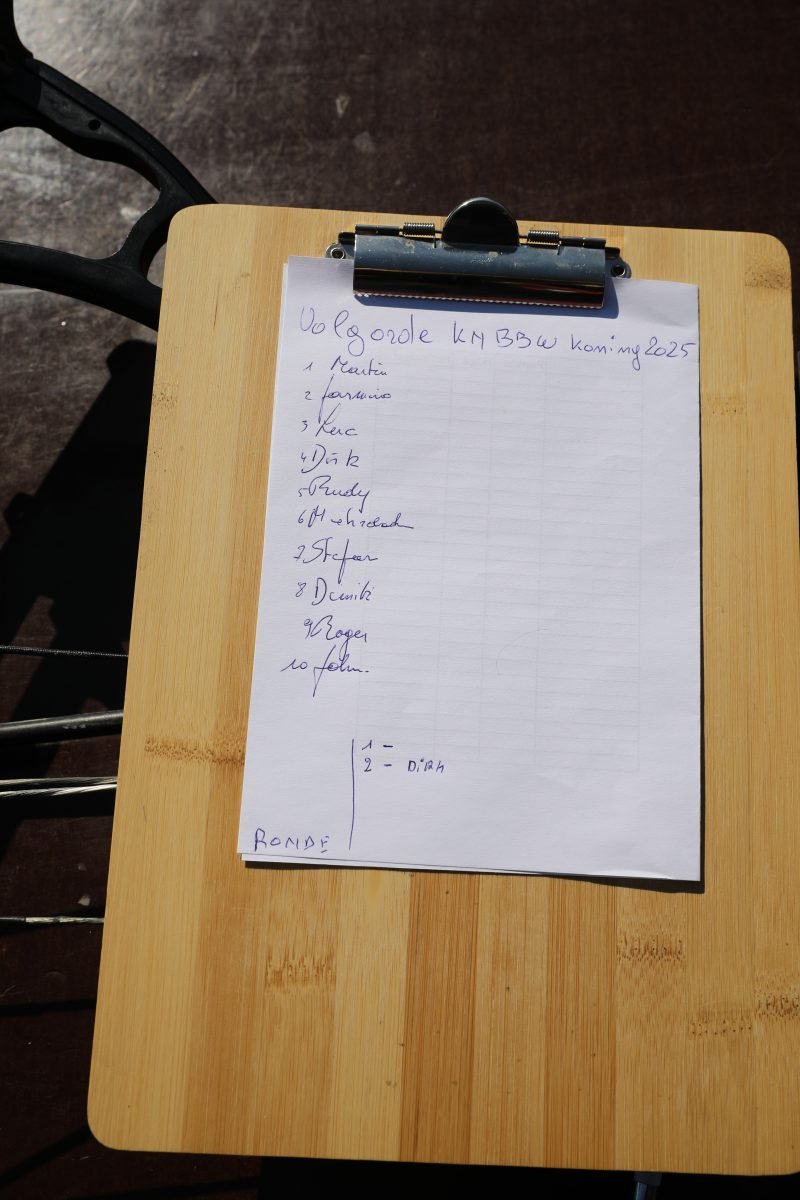 Volgorde KNBBW Koning 2025
1 Martin
2 Jasmino
3 Luc
4 Dirk
5 Rudy
6 Mehrdad
7 Stefan
8 Dimitri
9 Roger
10 John
1 -
2 - DiRK
RONDE